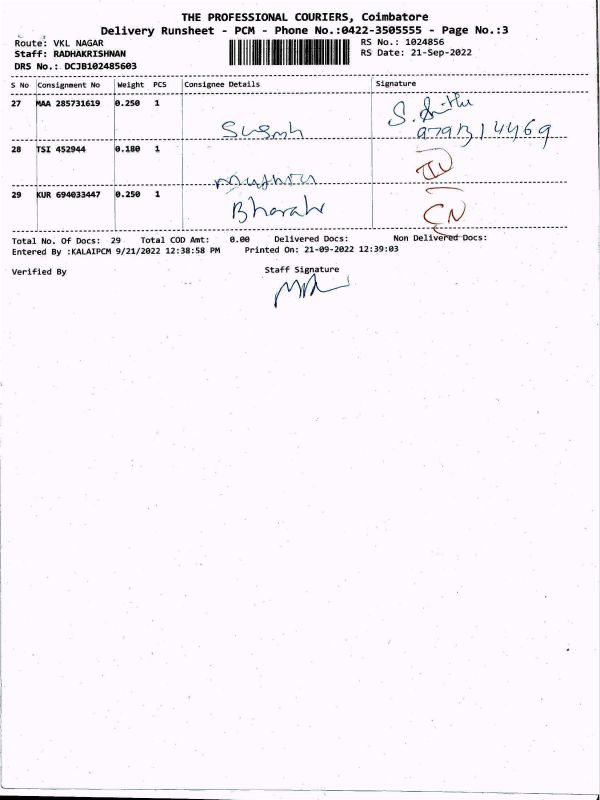 THE PROFESSIONAL COURIERS, Coimbatore
Delivery Runsheet - PCM - Phone No.:0422-3505555 - Page No.:3
Route: VKL NAGAR RS No.: 1024856
Staff: RADHAKRISHNAN RS Date: 21-Sep-2022
DRS No.: DCJB102485603
S No Consignment No Weight PCS Consignee Details Signature
27 MAA 285731619 0.250 1
28 TSI 452944 0.180 1
29 KUR 694033447 0.250 1
Bharah
CN
Total No. Of Docs: 29 Total COD Amt: 0.00 Delivered Docs: Non Delivered Docs:
Entered By :KALAIPCM 9/21/2022 12:38:58 PM Printed On: 21-09-2022 12:39:03
Verified By Staff Signature